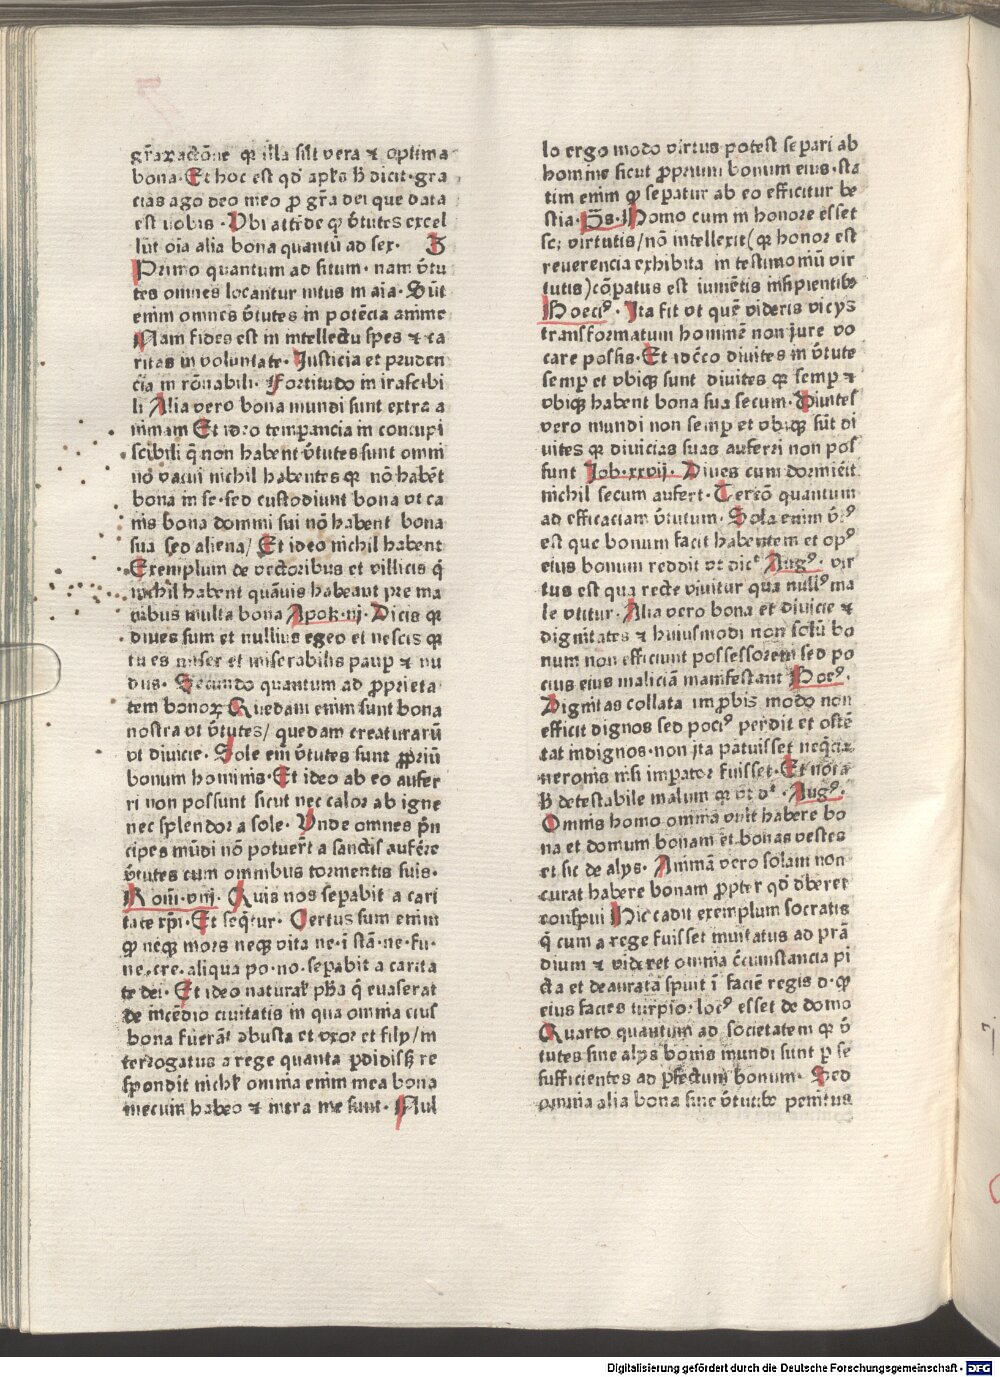 gr̄aꝝactōne ꝙ illa sūt vera ⁊ optima
bona·Et hoc est qď apl̄s ħ dicit·gra
cias ago deo meo ꝓ gr̄a dei que data
est uobis·Ubi attēde ꝙ v̄tutes excel
lūt oīa alia bona quantū ad sex· B
Primo quantum ad situm·nam v̄tu
tes omnes locantur intus in aīa·Sūt
enim omnes v̄tutes in potēcia anime
Nam fides est in intellectu spes ⁊ ca
ritas in voluntate·Justicia et pruden
cia in rōnabili·Fortitudo in irascibi
li Alia vero bona mundi sunt extra a
nimam Et ideo temꝑancia in concupi
scibili q̄ non habent v̄tutes sunt omni
no vacui nichil habentes ꝙ nō habēt
bona in se·sed custodiunt bona vt ca
nis bona domini sui nō habent bona
sua sed aliena/ Et ideo nichil habent
Exemplum de vectoribus et villicis q̄
nichil habent quāuis habeant pre ma
nibus multa bona Apok·iij·Dicis ꝙ
diues sum et nullius egeo et nescis ꝙ
tu es miser et miserabilis pauꝑ ⁊ nu
dus·Secundo quantum ad ꝓprieta
tem bonoꝝ Quedam enim sunt bona
nostra vt v̄tutes/ quedam creaturarū
vt diuicie·Sole em̄ v̄tutes sunt ꝓpriū
bonum hominis·Et ideo ab eo aufer
ri non possunt sicut nec calor ab igne
nec splendor a sole·Unde omnes pn̄
cipes mūdi nō potuer̄t a sanctis auferre
v̄tutes cum omnibus tormentis suis·
Rom̄·viij·Quis nos seꝑabit a cari
tate xp̄i·Et seq̄tur·Certus sum enim
ꝙ neqꝫ mors neqꝫ vita ne·ī stā·ne·fu·
ne·cre·aliqua po·no·seꝑabit a carita
te dei·Et ideo natural̄ ph̄a q̄ euaserat
de incēdio ciuitatis in qua omnia eius
bona fuerāt abusta et vxor et filij/in
terrogatus a rege quanta ꝑdidisset re
spondit nichil omnia enim mea bona
mecum habeo ⁊ intra me sunt·Nul
lo ergo modo virtus potest seꝑari ab
homine sicut ꝓprium bonum eius·sta
tim enim ꝙ seꝑatur ab eo efficitur be
stia·P̄s·Homo cum in honore esset
scꝫ virtutis/nō intellexit(ꝙ honor est
reuerencia exhibita in testimoniū vir
tutis)cōꝑatus est iumētis insipientibꝫ
Boeciꝰ·Ita fit vt quē videris vicijs
transformatum hominē non jure vo
care possis·Et idcc̄o diuites in v̄tute
semꝑ et vbiqꝫ sunt diuites ꝙ semꝑ ⁊
vbiqꝫ habent bona sua secum·Diuites
vero mundi non semꝑ et vbiqꝫ sūt di
uites ꝙ diuicias suas auferri non pos
sunt Job·xxvij·Diues cum dormierit
nichil secum aufert·Tercō quantum
ad efficaciam v̄tutum·Sola enim v̄tꝰ
est que bonum facit habentem et opꝰ
eius bonum reddit vt dic̄t Augꝰ·vir
tus est qua recte viuitur qua nullꝰ ma
le vtitur·Alia vero bona et diuicie ⁊
dignitates ⁊ huiusmodi non solū bo
num non efficiunt possessorem sed po
cius eius maliciā manifestant Boeꝰ·
Dignitas collata imꝓbis modo non
efficit dignos sed pociꝰ perdit et ostē
tat indignos·non ita patuisset neq̄cia
neronis nisi imꝑator fuisset·Et nota
ħ detestabile malum ꝙ vt d̄t·Augꝰ·
Omnis homo omnia vult habere bo
na et domum bonam et bonas vestes
et sic de alijs·Animā vero solam non
curat habere bonam ꝓpter qď deberet
conspui Hic cadit exemplum socratis
q̄ cum a rege fuisset inuitatus ad prā
dium ⁊ videret omnia c̄cumstancia pi
cta et deaurata spuit ī faciē regis d·ꝙ
eius facies turpior locꝰ esset de domo
Quarto quantum ad societatem ꝙ v̄
tutes sine alijs bonis mundi sunt ꝑ se
sufficientes ad ꝑfectum bonum·Sed
omnia alia bona sine v̄tutibꝫ penitus
Digitalisierung gefördert durch die Deutsche Forschungsgemeinschaft - DFG